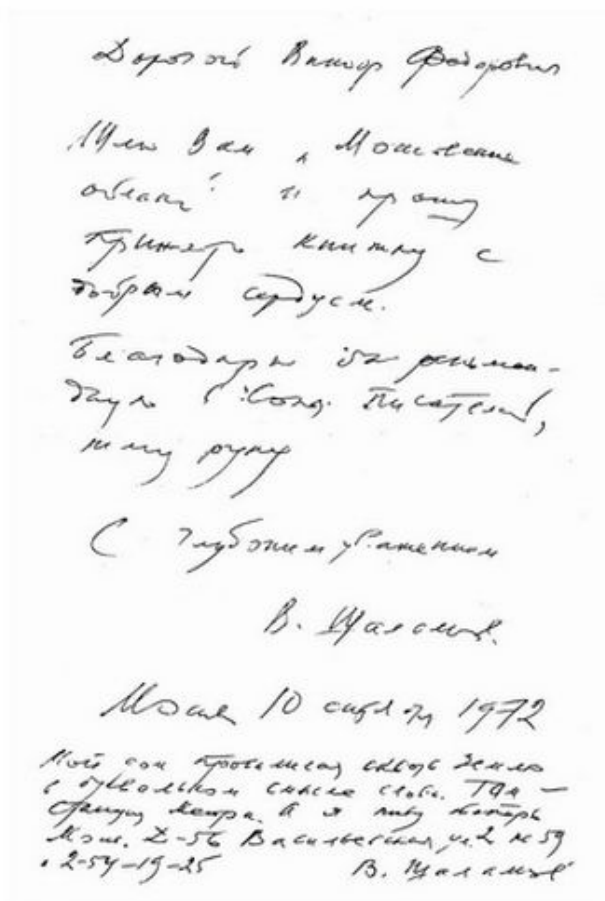 Дорогой Виктор Федорович
Шлю Вам „Московские
облака" и прошу
принять книжку с
добрым сердцем.
Благодарю за рекомен-
дацию в Союз Писателей,
жму руку
С глубоким уважением
В. Шаламов.
Москва 10 октября 1972
Мой дом провалился сквозь землю
в буквальном смысле слова. Там —
станция метро. А я живу теперь
Моск. Д-56 Васильевская, ул. 2 к 59
2-54-19-25 В. Шаламов